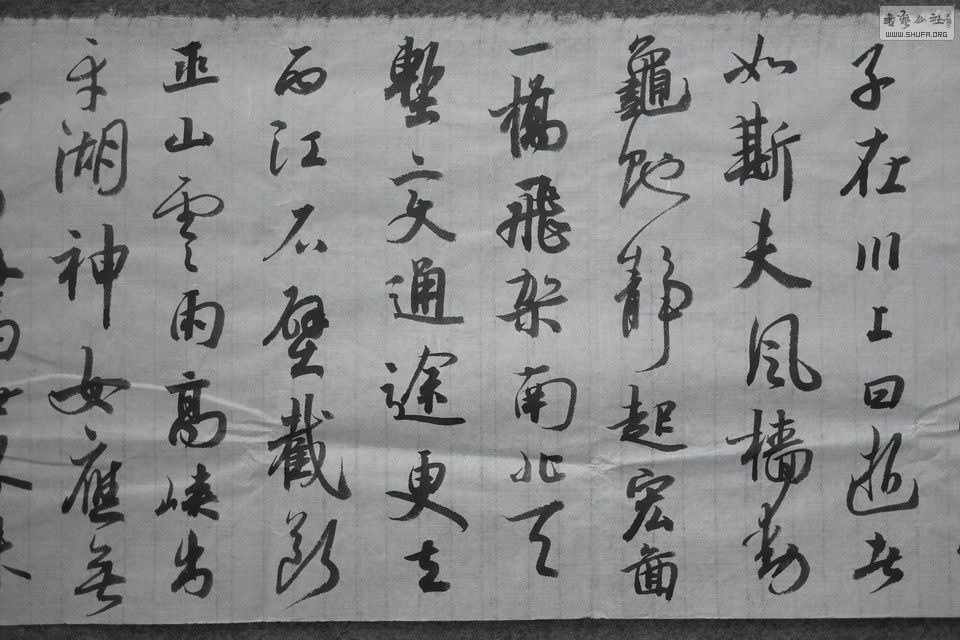 子在川上曰逝者
如斯夫風檣動
龜虵靜起宏圖
一橋飛架南北天
塹变通途更立
西江石壁截斷
巫山雲雨高峽出
平湖神女應無
書藝公社
WWW.SHUFA.ORG